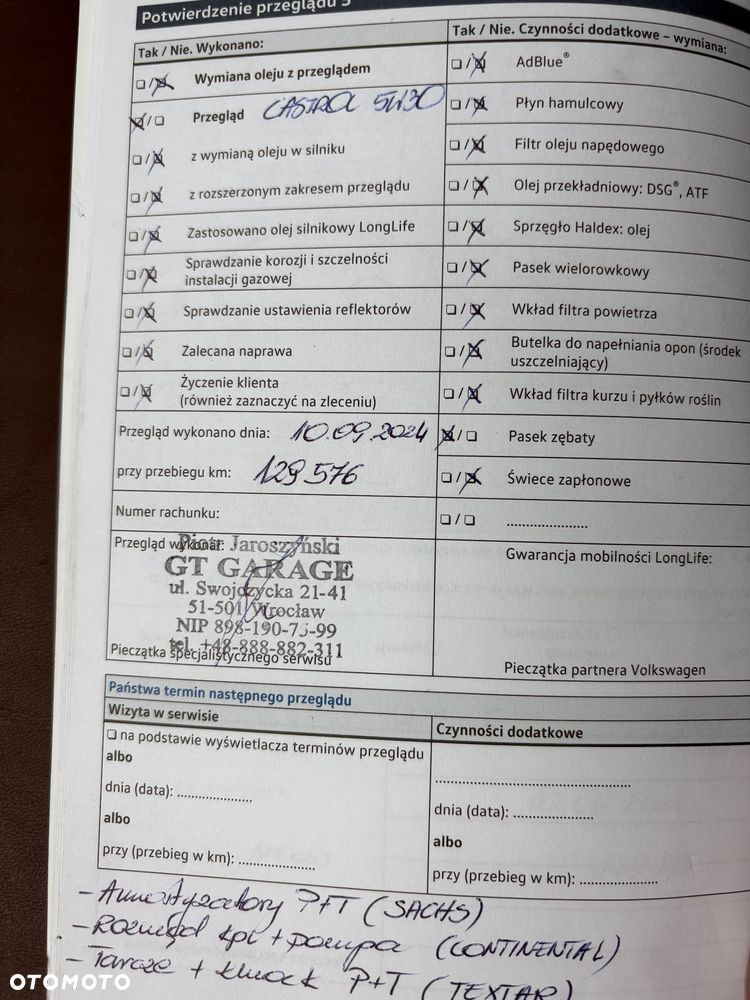 Potwierdzenie przeglądu 5
Tak / Nie. Wykonano:
☐/☒ Wymiana oleju z przeglądem
☒/☐ Przegląd CASTROL 5W30
☐/☒ z wymianą oleju w silniku
☐/☒ z rozszerzonym zakresem przeglądu
☐/☒ Zastosowano olej silnikowy LongLife
☐/☒ Sprawdzanie korozji i szczelności
instalacji gazowej
☐/☒ Sprawdzanie ustawienia reflektorów
☐/☒ Zalecana naprawa
☐/☒ Życzenie klienta
(również zaznaczyć na zleceniu)
Przegląd wykonano dnia: 10.09.2024
przy przebiegu km: 129 576
Numer rachunku:
Przegląd wykonał:
Piotr Jaroszyński
GT GARAGE
ul. Swojczycka 21-41
51-501 Wrocław
NIP 898-190-75-99
tel. +48-888-882-311
Pieczątka specjalistycznego serwisu
Tak / Nie. Czynności dodatkowe – wymiana:
☐/☒ AdBlue®
☐/☒ Płyn hamulcowy
☐/☒ Filtr oleju napędowego
☐/☒ Olej przekładniowy: DSG®, ATF
☐/☒ Sprzęgło Haldex: olej
☐/☒ Pasek wielorowkowy
☐/☒ Wkład filtra powietrza
☐/☒ Butelka do napełniania opon (środek
uszczelniający)
☐/☒ Wkład filtra kurzu i pyłków roślin
☒/☐ Pasek zębaty
☐/☒ Świece zapłonowe
☐/☐ .....................
Gwarancja mobilności LongLife:
Pieczątka partnera Volkswagen
Państwa termin następnego przeglądu
Wizyta w serwisie
☐ na podstawie wyświetlacza terminów przeglądu
albo
dnia (data): ....................
albo
przy (przebieg w km): ....................
Czynności dodatkowe
..................................................
dnia (data): .....................
albo
przy (przebieg w km): .....................
- Amortyzatory P+T (SACHS)
- Rozrząd kpl + pompa (CONTINENTAL)
- Tarcze + klocki P+T (TEXTAR)
OTOMOTO